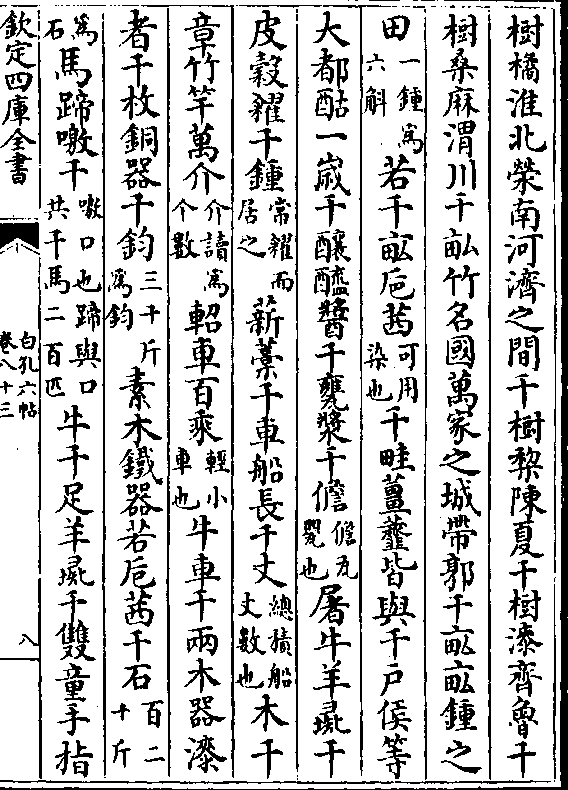 樹橘淮北榮南河濟之間千樹棃陳夏千樹漆齊魯千
樹桑麻渭川千畝竹名國萬家之城帶郭千畝畝鍾之
田一鍾為六斛若千畝巵茜可用染也千畦薑韰皆與千戶侯等
大都酤一歳千釀醯醬千甕漿千儋儋瓦甖也屠牛羊彘千
皮穀糴千鍾常糴而居之薪藁千車船長千丈總積船丈數也木千
章竹竿萬介介讀為个數軺車百乘輕小車也牛車千兩木器漆
者千枚銅器千鈞三千斤為鈞素木鐵器若巵茜千石百二十斤
為石馬蹄噭千噭口也蹄與口共千馬二百匹牛千足羊彘千雙童手指
欽定四庫全書
白孔六帖
卷八十三
八